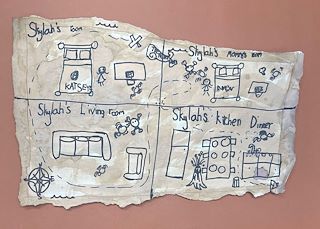 Skylah's Room
KATSEYE
Skylah's Mummy's Room
Skylah's Living room
Skylah's Kitchen
Dinner